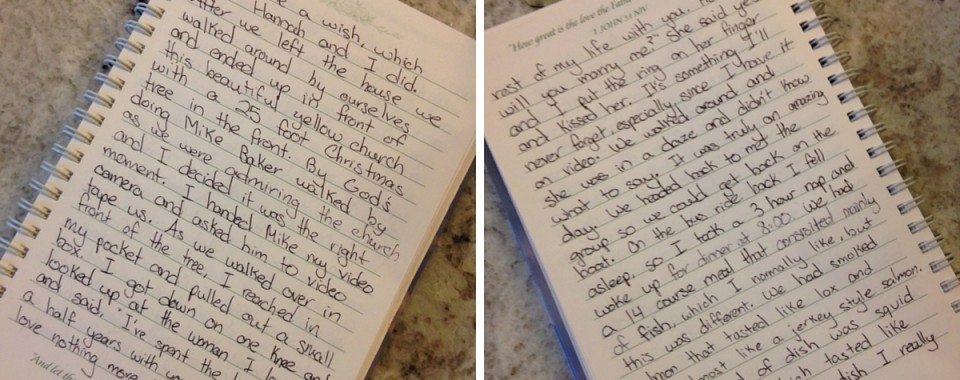 e a wish, which
Hannah and I did.
After we left the house we
walked around by ourselves
and ended up in front of
this beautiful yellow church
with a 25 foot Christmas
tree in the front. By God's
doing Mike Baker walked by
as we were admiring the church
and I decided it was the right
moment. I handed Mike my video
camera and asked him to video
tape us. As we walked over in
front of the tree, I reached in
my pocket and pulled out a small
box. I got down on one knee and
looked up at the woman I lo
and said, "I've spent the
a half years with yo
love
nothing more
"And let the
"How great is the love the Fathe
1 JOHN 3:1 NIV
rest of my life with you,
will you marry me?" She said yes
and I put the ring on her finger
and kissed her. It's something I'll
never forget, especially since I have it
on video. We walked around and
she was in a daze and didn't know
what to say. It was truly an amazing
day. We headed back to met the
group so we could get back on the
boat. On the bus ride back I fell
asleep, so I took a 3 hour nap and
woke up for dinner at 8:00. We had
a 14 course meal that consisted mainly
of fish, which I normally like, but
this was different. We had smoked
that tasted like lox and
most like a jerky style salmon.
d of dish was squid
tasted like
dish I really